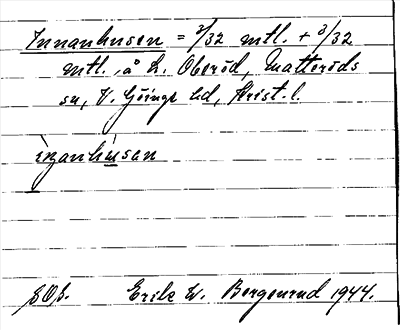 Innanhusen = 3/32 mtl. + 3/32
mtl., å L. Oberöd, Matteröds
sn, V. Göinge hd, Krist. l.
ìnanhúsan
Erik W. Bergenrud 1944.